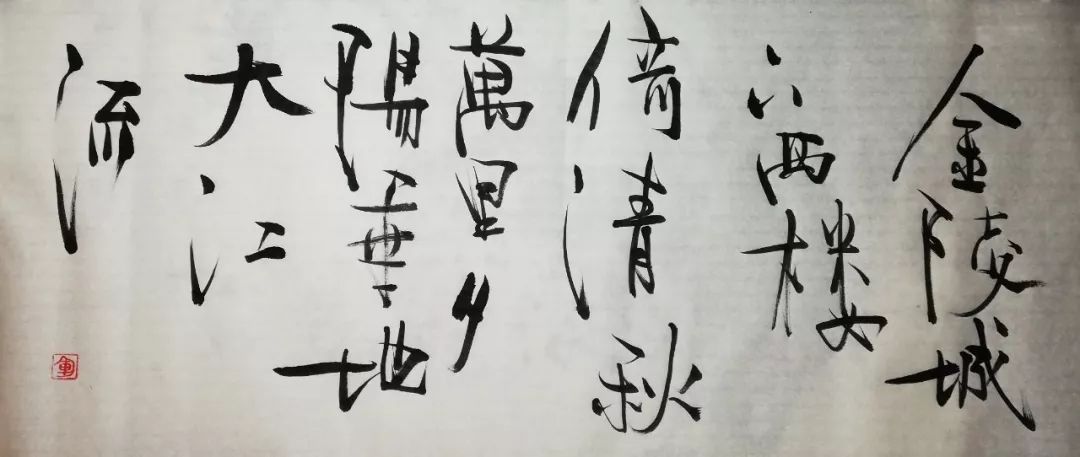 金陵城
上西樓
倚清秋
萬里夕
陽垂地
大江
流